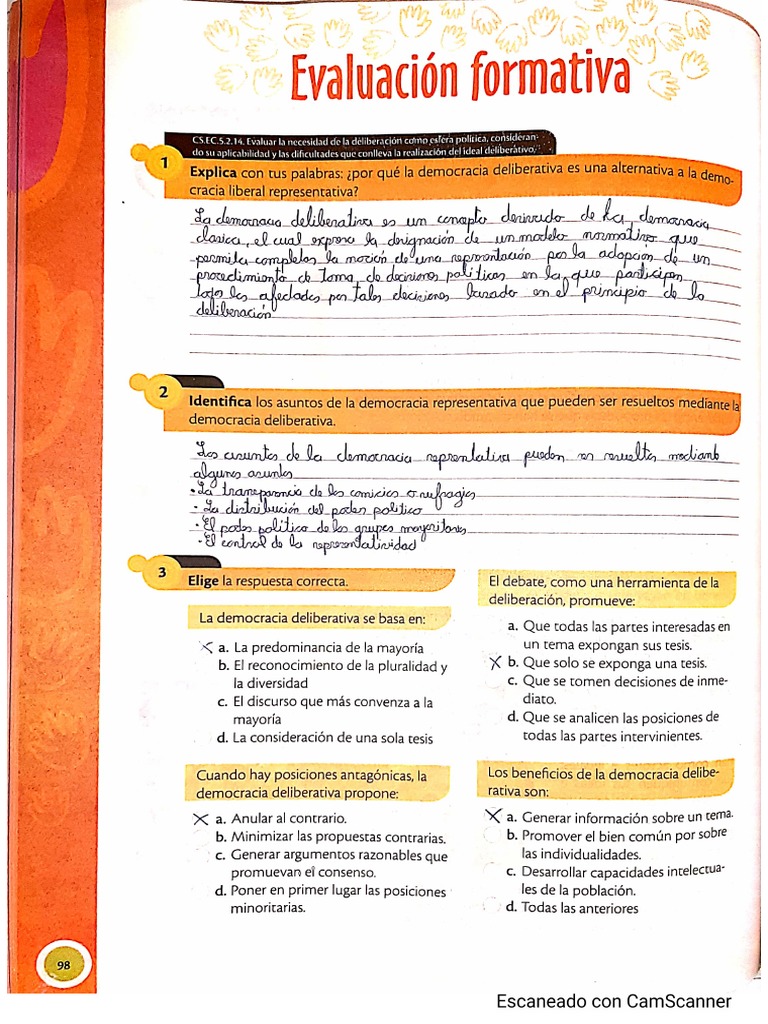 Evaluación formativa
CS.EC.5.2.14. Evaluar la necesidad de la deliberación como esfera política, consideran-
do su aplicabilidad y las dificultades que conlleva la realización del ideal deliberativo.
1
Explica con tus palabras: ¿por qué la democracia deliberativa es una alternativa a la demo-
cracia liberal representativa?
La democracia deliberativa es un concepto derivado de la democracia
clasica, el cual expresa la designación de un modelo normativo que
permita completos la noción de una representación por la adopcion de un
procedimiento de toma de decisiones políticas en la que participen
todos los afectados por tales decisiones basado en el principio de la
deliberación
2
Identifica los asuntos de la democracia representativa que pueden ser resueltos mediante la
democracia deliberativa.
Los asuntos de la democracia representativa pueden ser resueltos mediante
algunos asuntos
• La transparencia de los comicios o sufragios
• La distribución del poder politico
• El poder politico de los grupos mayoritarios
• El control de la representatividad
3
Elige la respuesta correcta.
La democracia deliberativa se basa en:
X a. La predominancia de la mayoría
b. El reconocimiento de la pluralidad y
la diversidad
c. El discurso que más convenza a la
mayoría
d. La consideración de una sola tesis
Cuando hay posiciones antagónicas, la
democracia deliberativa propone:
X a. Anular al contrario.
b. Minimizar las propuestas contrarias.
c. Generar argumentos razonables que
promuevan el consenso.
d. Poner en primer lugar las posiciones
minoritarias.
El debate, como una herramienta de la
deliberación, promueve:
a. Que todas las partes interesadas en
un tema expongan sus tesis.
X b. Que solo se exponga una tesis.
c. Que se tomen decisiones de inme-
diato.
d. Que se analicen las posiciones de
todas las partes intervinientes.
Los beneficios de la democracia delibe-
rativa son:
X a. Generar información sobre un tema.
b. Promover el bien común por sobre
las individualidades.
c. Desarrollar capacidades intelectua-
les de la población.
d. Todas las anteriores
98
Escaneado con CamScanner